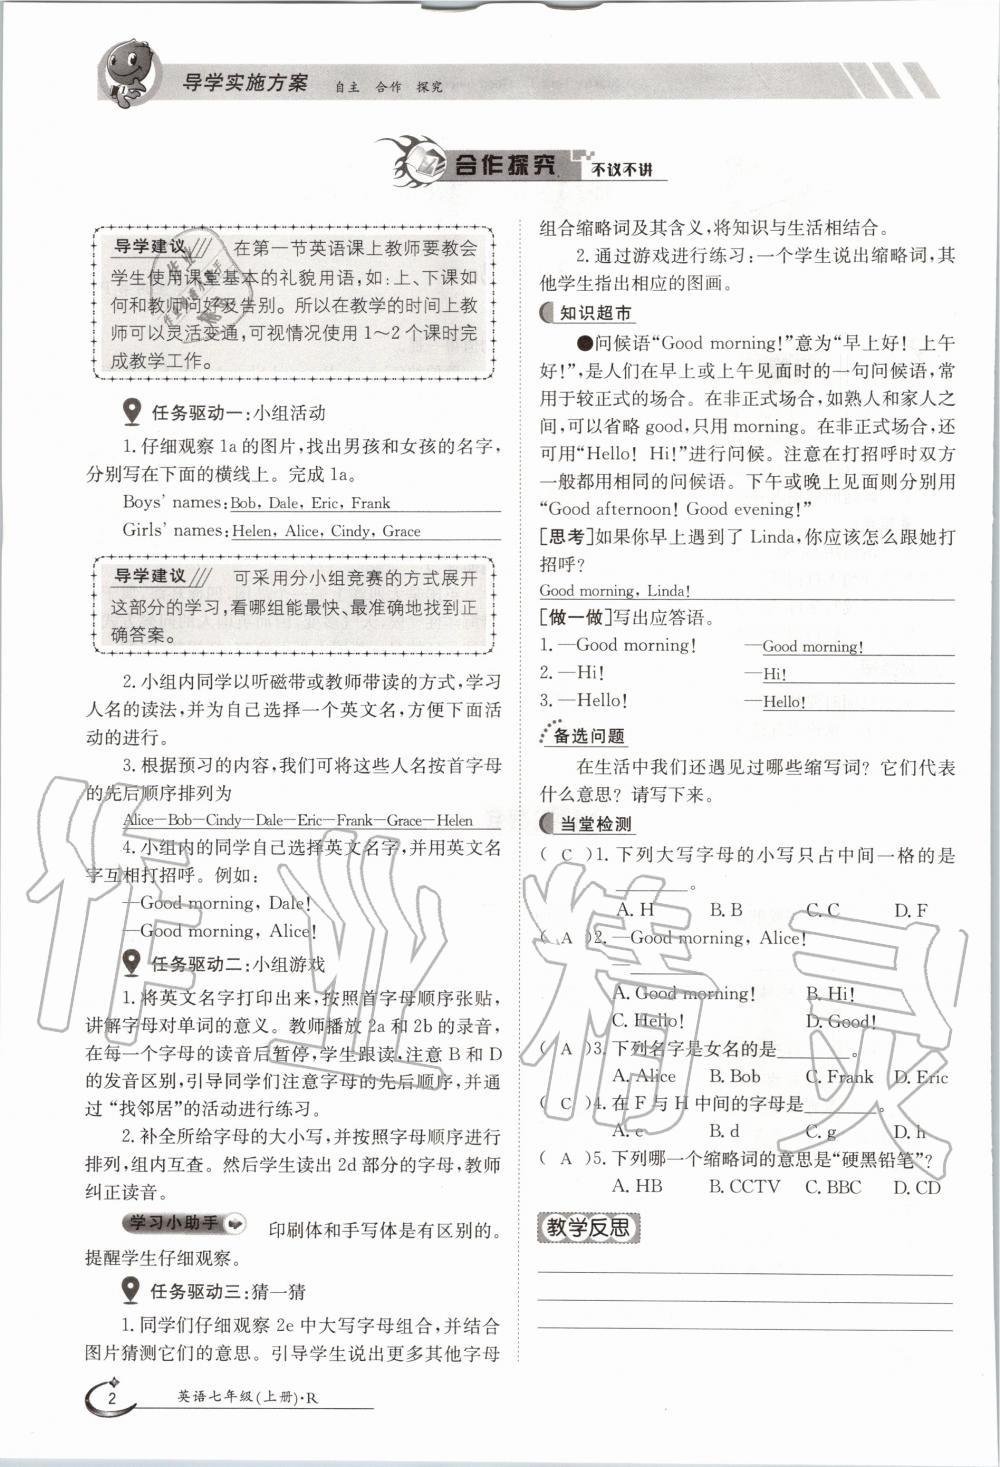 导学实施方案 自主 合作 探究
合作探究 不议不讲
导学建议 在第一节英语课上教师要教会
学生使用课堂基本的礼貌用语,如:上、下课如
何和教师问好及告别。所以在教学的时间上教
师可以灵活变通,可视情况使用1～2个课时完
成教学工作。
任务驱动一:小组活动
1.仔细观察1a的图片,找出男孩和女孩的名字,
分别写在下面的横线上。完成1a。
Boys' names: Bob, Dale, Eric, Frank
Girls' names: Helen, Alice, Cindy, Grace
导学建议 可采用分小组竞赛的方式展开
这部分的学习,看哪组能最快、最准确地找到正
确答案。
2.小组内同学以听磁带或教师带读的方式,学习
人名的读法,并为自己选择一个英文名,方便下面活
动的进行。
3.根据预习的内容,我们可将这些人名按首字母
的先后顺序排列为
Alice—Bob—Cindy—Dale—Eric—Frank—Grace—Helen
4.小组内的同学自己选择英文名字,并用英文名
字互相打招呼。例如:
—Good morning, Dale!
—Good morning, Alice!
任务驱动二:小组游戏
1.将英文名字打印出来,按照首字母顺序张贴,
讲解字母对单词的意义。教师播放2a和2b的录音,
在每一个字母的读音后暂停,学生跟读,注意B和D
的发音区别,引导同学们注意字母的先后顺序,并通
过“找邻居”的活动进行练习。
2.补全所给字母的大小写,并按照字母顺序进行
排列,组内互查。然后学生读出2d部分的字母,教师
纠正读音。
学习小助手 印刷体和手写体是有区别的。
提醒学生仔细观察。
任务驱动三:猜一猜
1.同学们仔细观察2e中大写字母组合,并结合
图片猜测它们的意思。引导学生说出更多其他字母
组合缩略词及其含义,将知识与生活相结合。
2.通过游戏进行练习:一个学生说出缩略词,其
他学生指出相应的图画。
知识超市
●问候语“Good morning!”意为“早上好! 上午
好!”,是人们在早上或上午见面时的一句问候语,常
用于较正式的场合。在非正式场合,如熟人和家人之
间,可以省略good,只用morning。在非正式场合,还
可用“Hello! Hi!”进行问候。注意在打招呼时双方
一般都用相同的问候语。下午或晚上见面则分别用
“Good afternoon! Good evening!”
[思考]如果你早上遇到了Linda,你应该怎么跟她打
招呼?
Good morning, Linda!
[做一做]写出应答语。
1.—Good morning! —Good morning!
2.—Hi! —Hi!
3.—Hello! —Hello!
备选问题
在生活中我们还遇见过哪些缩写词? 它们代表
什么意思? 请写下来。
当堂检测
( C )1.下列大写字母的小写只占中间一格的是
________。
A. H B. B C. C D. F
( A )2.—Good morning, Alice!
—________
A. Good morning! B. Hi!
C. Hello! D. Good!
( A )3.下列名字是女名的是________。
A. Alice B. Bob C. Frank D. Eric
( C )4.在F与H中间的字母是________。
A. e B. d C. g D. h
( A )5.下列哪一个缩略词的意思是“硬黑铅笔”?
A. HB B. CCTV C. BBC D. CD
教学反思
2 英语七年级(上册)·R
作业精灵